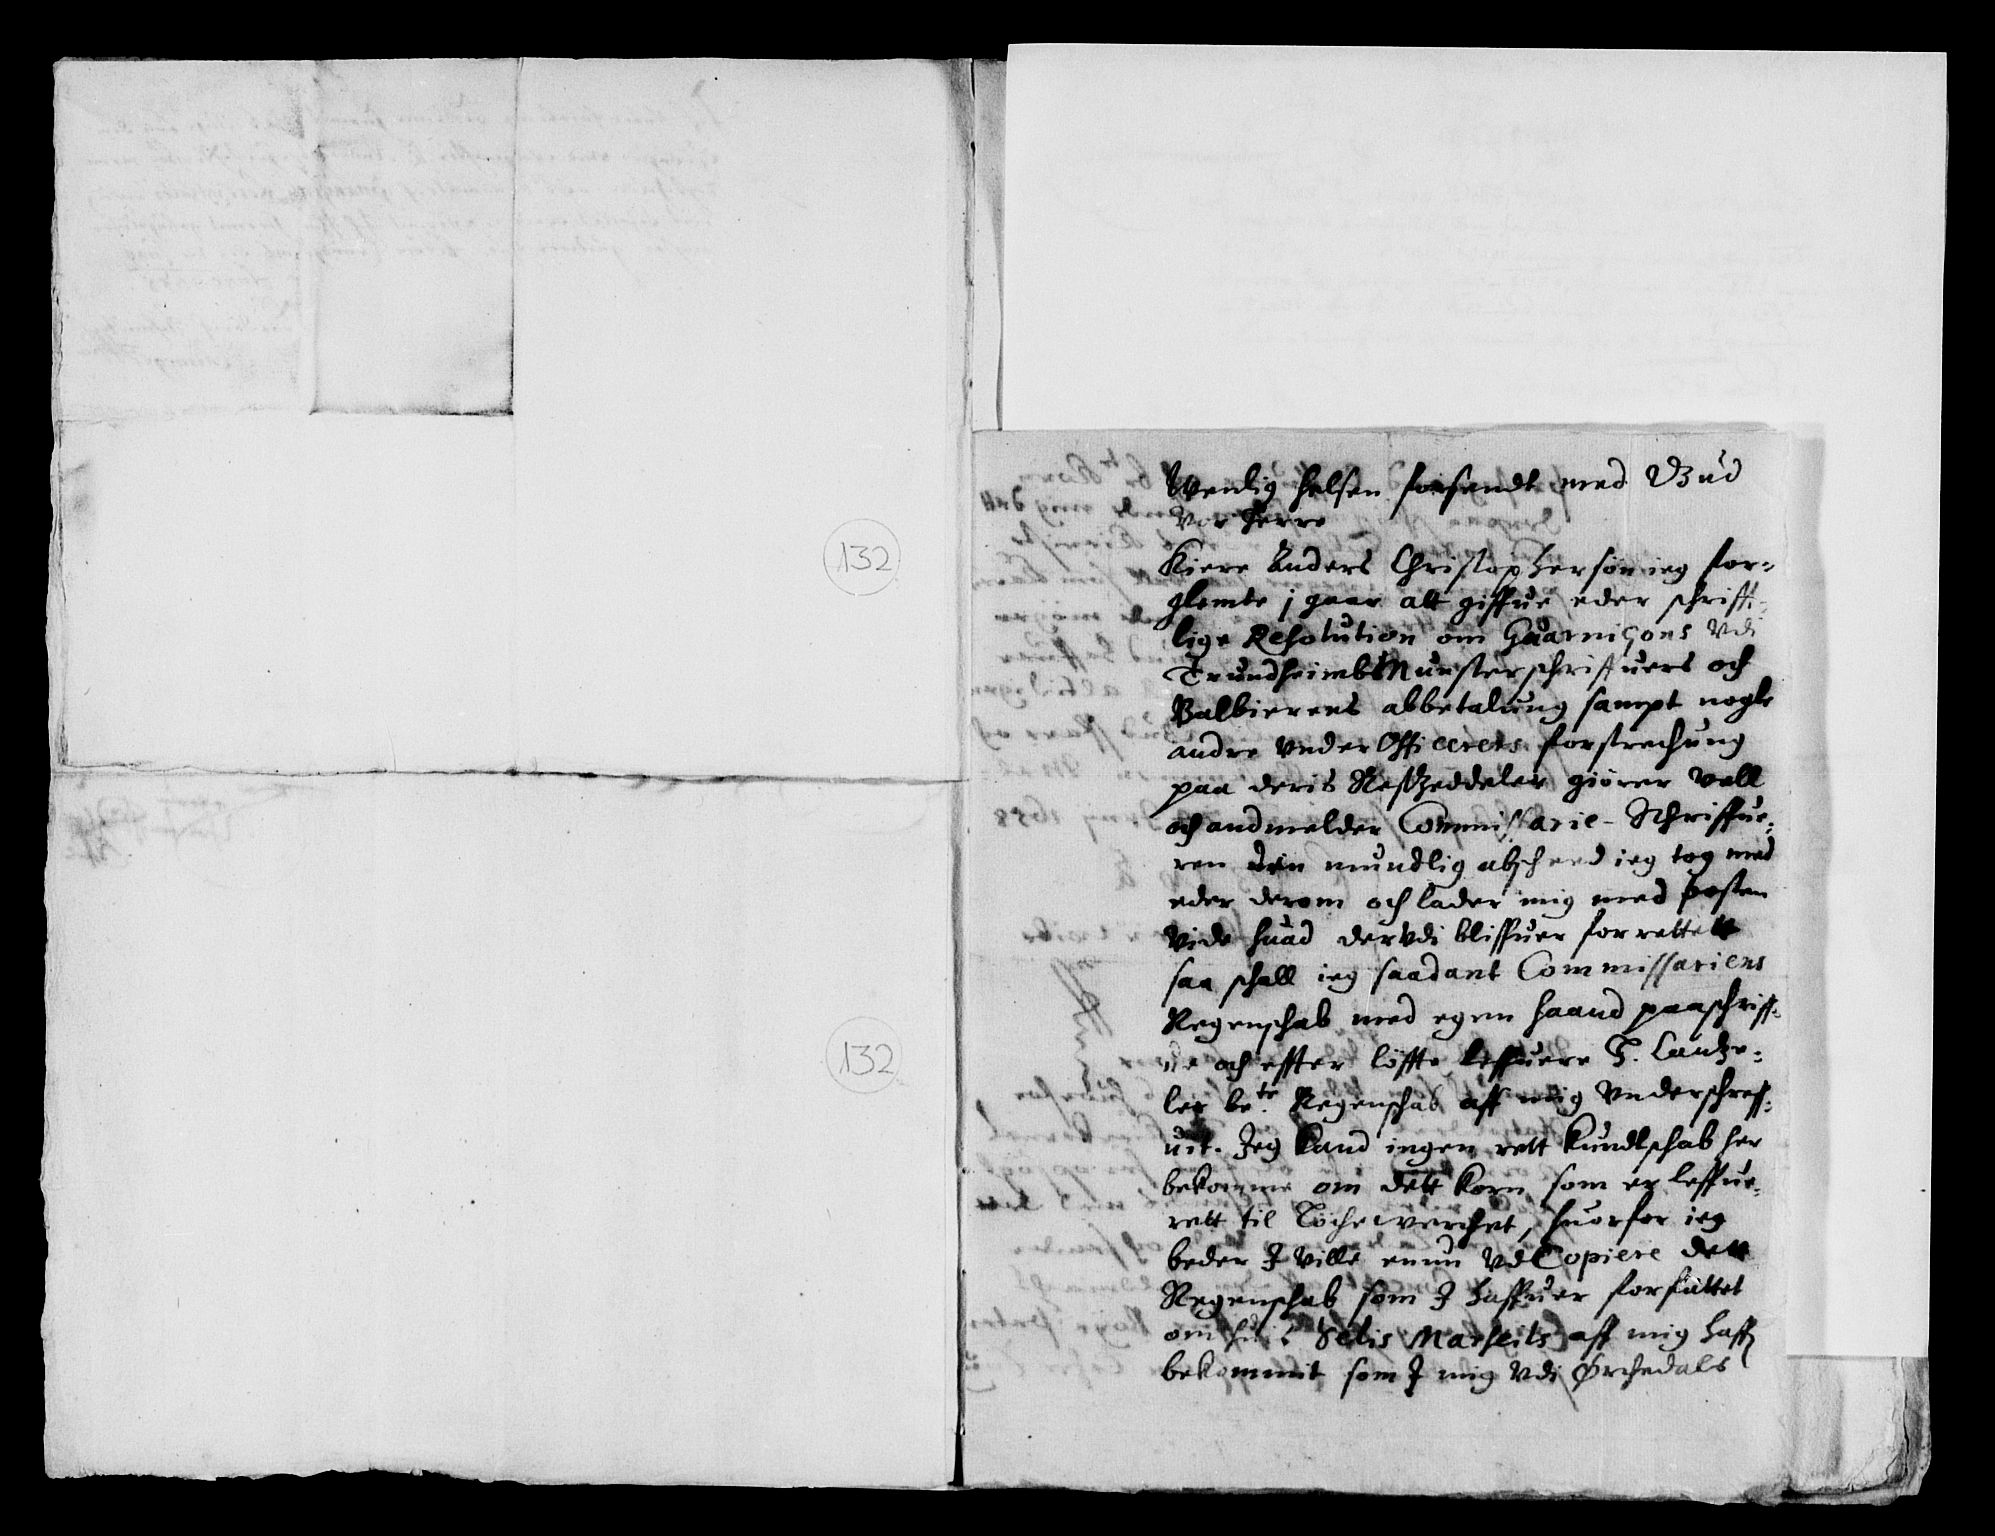 132
132
Wenlig helsen forsendt med Gud
Vor Herre
Kiere Anders Christophersøn ieg for-
glemte j gaar att giffue eder schrifft-
lige Resolution om Guarniçons Vdi
Trundheimbs Munsterschriffuers och
Balbierers abbetalung sampt nogle
andre Vnder Officerers forstrechung
paa deris Restzeddeler giører vell
och andmelder Commissarie-Schriffue-
ren den mundlig abscheed ieg tog med
eder derom och lader mig med posten
Vide huad derVdi bliffuer forrettett
saa schall ieg saadant Commissariens
Regenschab med egen haand paaschriff-
ue och effter løffte leffuere H. Cantze-
ler be.te Regenschab aff mig Vnderschreff-
uit. Jeg kand ingen rett kundtschab her
bekomme om dett korn som er leffue-
rett til Løchewerchet, huorfor ieg
beder J ville ennu Vd Copiere dett
Regenschab som J haffuer forfattet
om huis Marselis aff mig haffr
bekommit som J mig Vdi Ørchedals